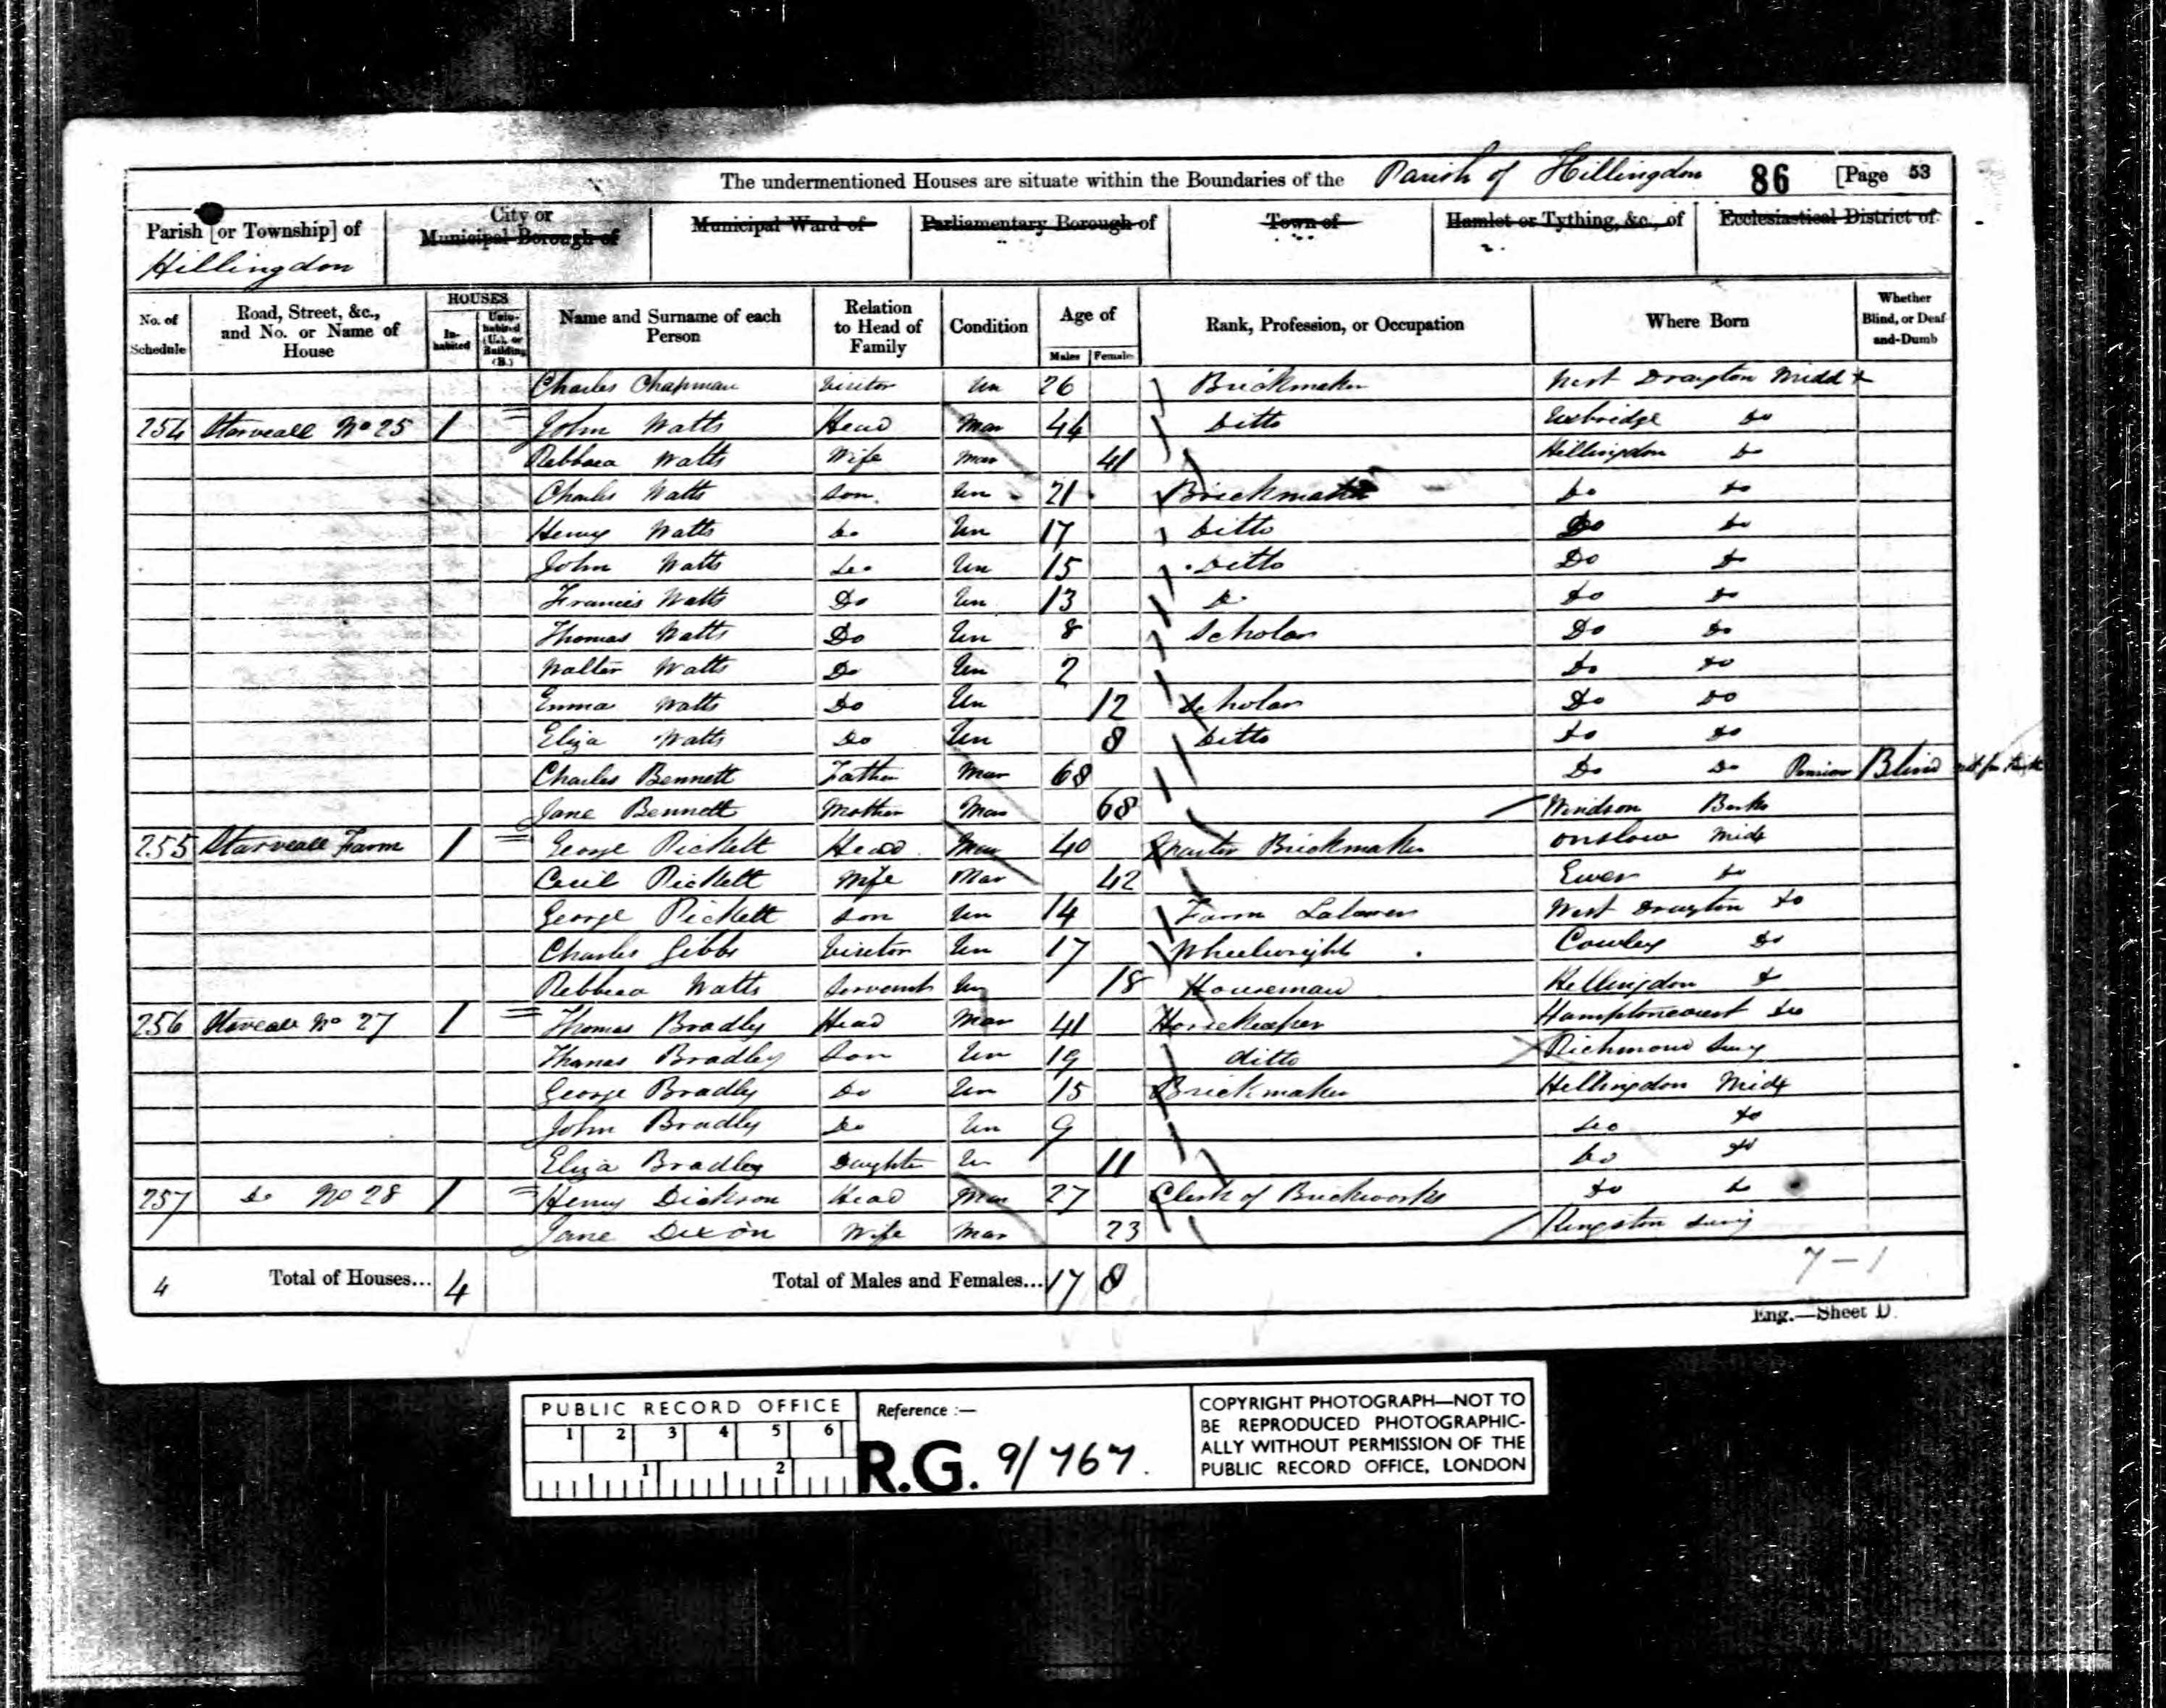 The undermentioned Houses are situate within the Boundaries of the Parish of Hillingdon 86 [Page 53
Parish [or Township] of Hillingdon
City or Municipal Borough of
Municipal Ward of
Parliamentary Borough of
Town of
Hamlet or Tything, &c., of
Ecclesiastical District of
No. of Schedule
Road, Street, &c., and No. or Name of House
HOUSES
In-habited
Unin-habited (U.), or Building (B.)
Name and Surname of each Person
Relation to Head of Family
Condition
Age of
Males Females
Rank, Profession, or Occupation
Where Born
Whether Blind, or Deaf-and-Dumb
Charles Chapman Visitor Un 26 Brickmaker West Drayton Midd x
254 Starveall No 25 1 John Watts Head Mar 44 Ditto Uxbridge Do
Rebbeca Watts Wife Mar 41 Hillingdon Do
Charles Watts Son Un 21 Brickmaker Do Do
Henry Watts Do Un 17 Ditto Do Do
John Watts Do Un 15 Ditto Do Do
Francis Watts Do Un 13 Do Do Do
Thomas Watts Do Un 8 Scholar Do Do
Walter Watts Do Un 2 Do Do
Emma Watts Do Un 12 Scholar Do Do
Eliza Watts Do Un 8 Ditto Do Do
Charles Bennett Father Mar 68 Do Do Blind
Jane Bennett Mother Mar 68 Windsor Berks
255 Starveall Farm 1 George Pickett Head Mar 40 Master Brickmaker Onslow Midx
Cecil Pickett Wife Mar 42 Ewer Do
George Pickett Son Un 14 Farm Labourer West Drayton Do
Charles Gibbs Visitor Un 17 Wheelwright Cowley Do
Rebbeca Watts Servant Un 18 Housemaid Hillingdon Do
256 Starveall No 27 1 Thomas Bradley Head Mar 41 Horsekeeper Hamptoncourt Do
Thomas Bradley Son Un 19 ditto Richmond Surry
George Bradley Do Un 15 Brickmaker Hillingdon Midx
John Bradley Do Un 9 Do Do
Eliza Bradley Daughter Un 11 Do Do
257 Do No 28 1 Henry Dickson Head Mar 27 Clerk of Brickworks Do Do
Jane Dixon Wife Mar 23 Kingston Surry
7-1
4 Total of Houses... 4 Total of Males and Females... 17 8
Eng.—Sheet D.
PUBLIC RECORD OFFICE
1 2 3 4 5 6
1 2
Reference :—
R.G. 9/767.
COPYRIGHT PHOTOGRAPH—NOT TO
BE REPRODUCED PHOTOGRAPHIC-
ALLY WITHOUT PERMISSION OF THE
PUBLIC RECORD OFFICE, LONDON